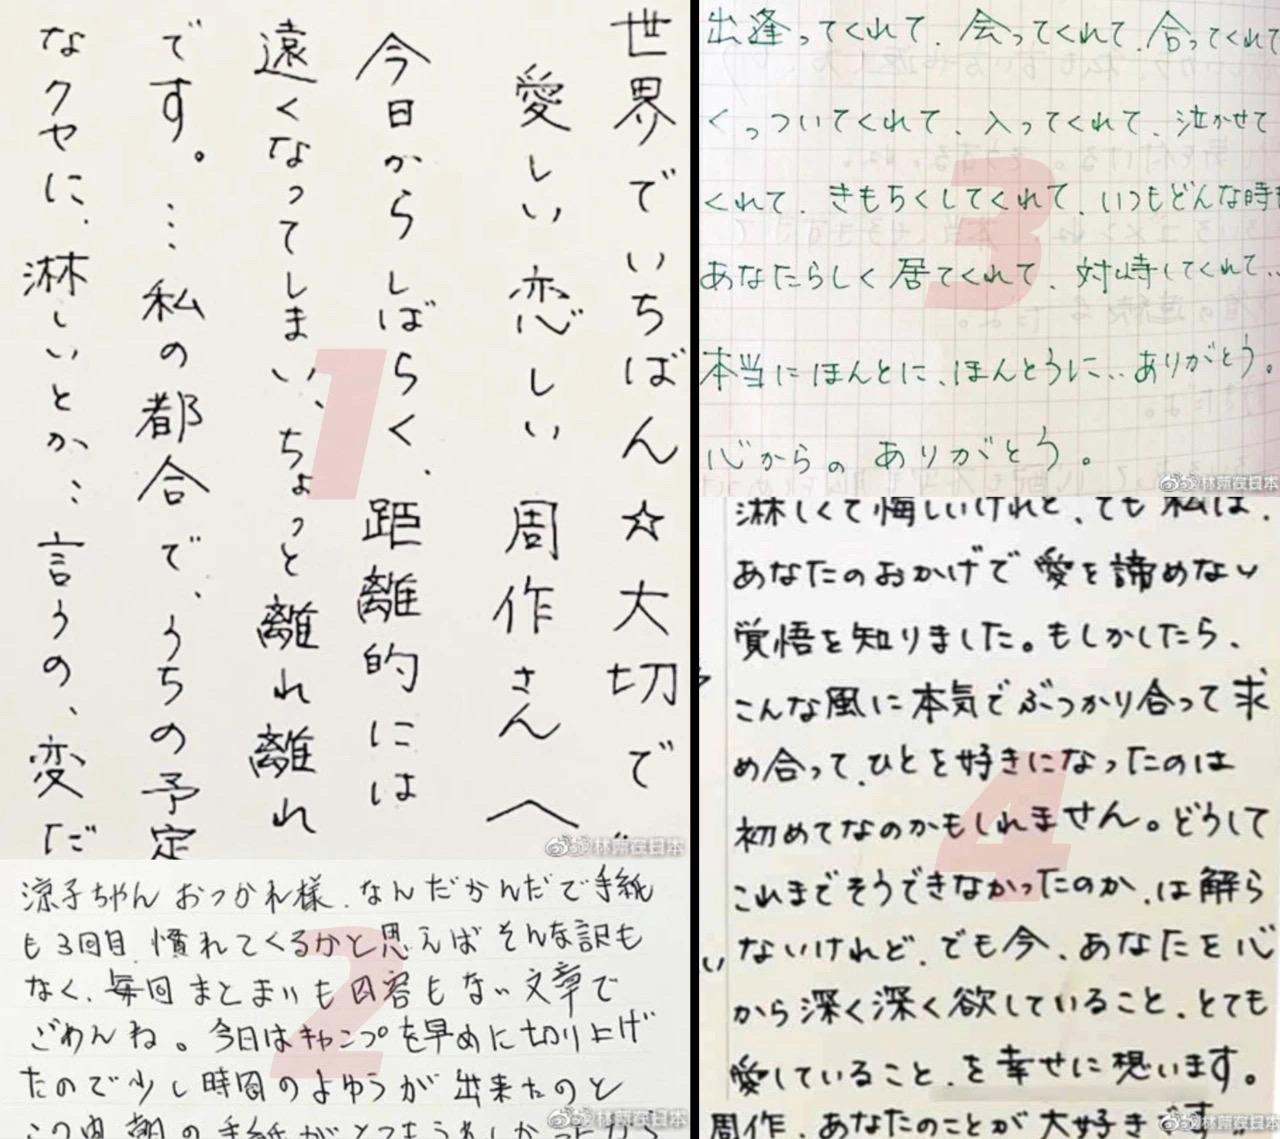 世界でいちばん☆大切で
愛しい恋しい 周作さんへ
今日からしばらく、距離的には
遠くなってしまい、ちょっと離れ離れ
です。…私の都合で、うちの予定
なクセに、淋しいとか…言うの、変だ
1
林萍在日本
涼子ちゃん おつかれ様。なんだかんだで手紙
も3回目。慣れてくるかと思えばそんな訳も
なく、毎回まとまりも内容もない文章で
ごめんね。今日はキャンプを早めに切り上げ
たので少し時間のよゆうが出来たのと
朝の手紙がとてもうれしかったから
2
林萍在日本
出逢ってくれて、会ってくれて、合ってくれて
くっついてくれて、入ってくれて、泣かせて
くれて、きもちくしてくれて、いつもどんな時も
あなたらしく居てくれて、対峙してくれて…
本当にほんとに、ほんとうに…ありがとう。
心からの ありがとう。
3
林萍在日本
淋しくて悔しいけれど、でも私は、
あなたのおかげで愛を諦めない
覚悟を知りました。もしかしたら、
こんな風に本気でぶつかり合って求
め合って、ひとを好きになったのは
初めてなのかもしれません。どうして
これまでそうできなかったのか、は解ら
ないけれど、でも今、あなたを心
から深く深く欲していること、とても
愛していること、を幸せに想います。
周作、あなたのことが大好きです。
4
林萍在日本